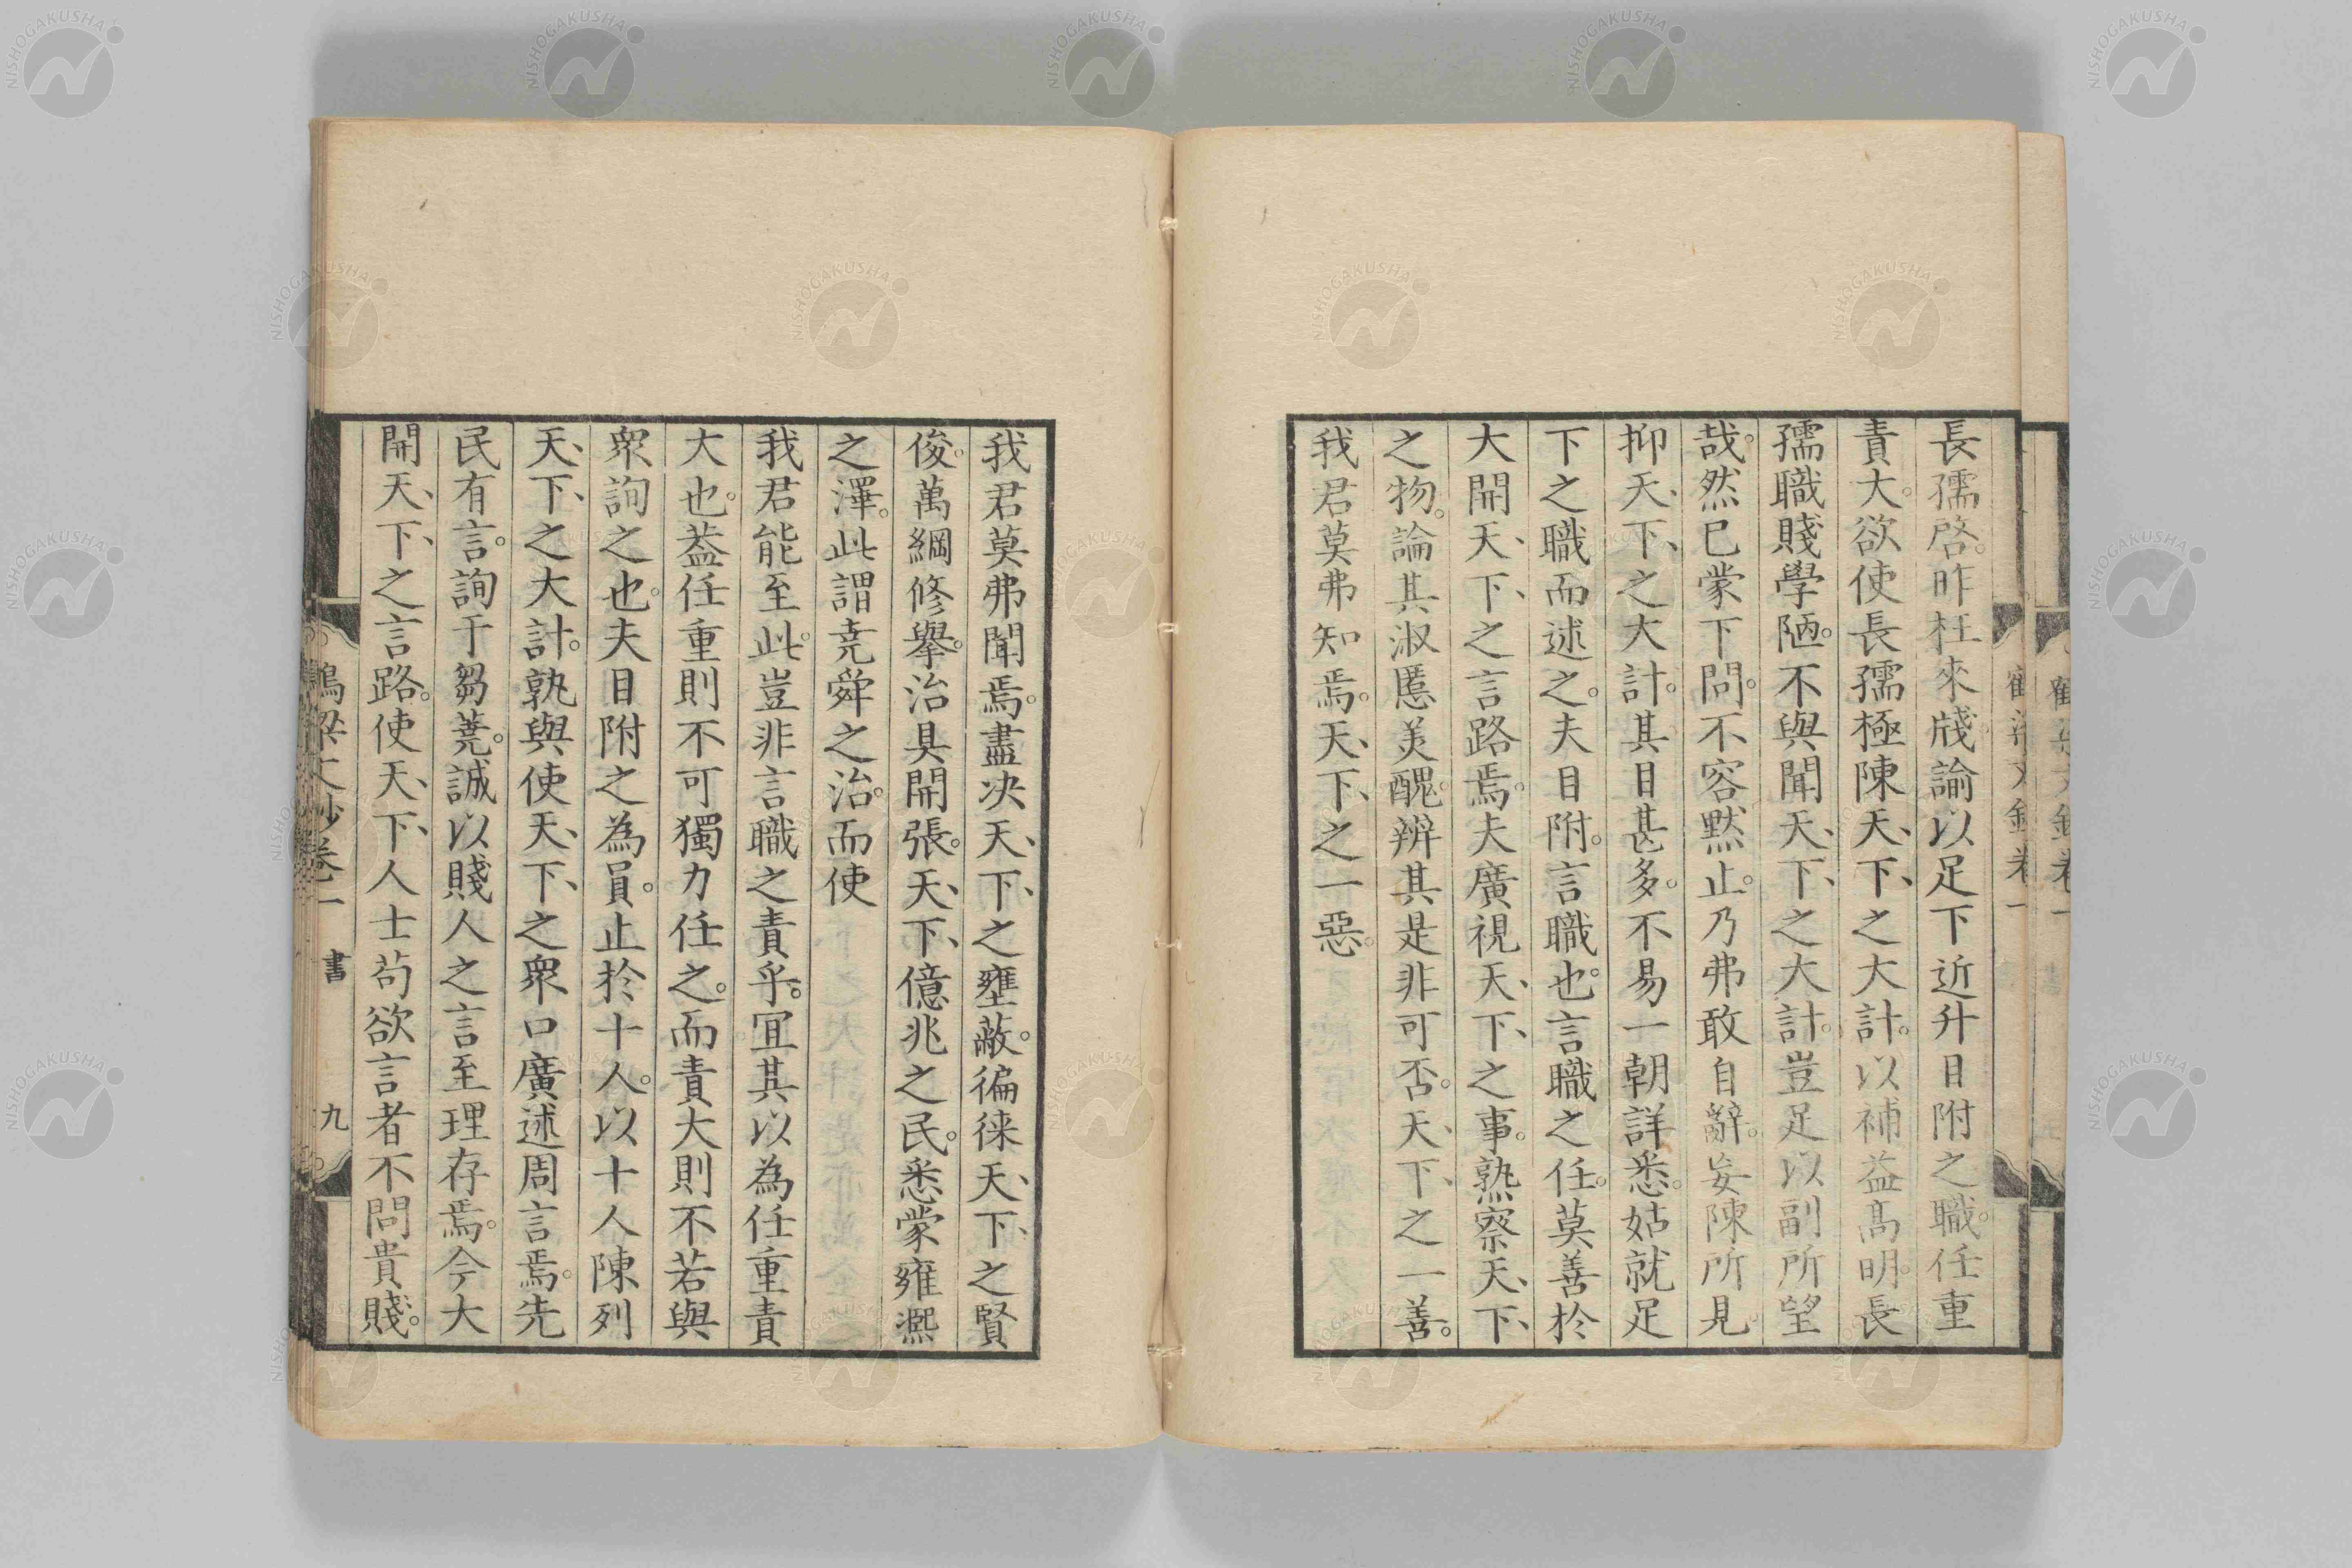 長孺啓。昨枉來牋諭以足下近升目附之職。任重
責大。欲使長孺極陳天、下、之大計。以補益髙明。長
孺職賤學陋。不與聞天、下、之大計。豈足以副所望
哉。然已蒙下問。不容默止。乃弗敢自辭。妄陳所見
抑天、下、之大計。其目甚多。不易一朝詳悉。姑就足
下之職而述之。夫目附。言職也。言職之任。莫善於
大開天、下、之言路焉。夫廣視天、下、之事。熟察天、下、
之物。論其淑慝美醜。辨其是非可否。天、下、之一善。
我君莫弗知焉。天、下、之一惡。
我君莫弗聞焉。盡决天、下、之壅蔽。徧徠天、下、之賢
俊。萬綱修擧。治具開張。天、下、億兆之民。悉蒙雍凞
之澤。此謂堯舜之治。而使
我君能至此。豈非言職之責乎。冝其以為任重責
大也。葢任重則不可獨力任之。而責大則不若與
衆詢之也。夫目附之為員。止於十人。以十人陳列
天、下、之大計。孰與使天、下、之衆口廣述周言焉。先
民有言。詢于芻蕘。誠以賤人之言至理存焉。今大
開天、下、之言路。使天、下、人士苟欲言者不問貴賤。
鶴梁文鈔卷一 書 九
NISHOGAKUSHA